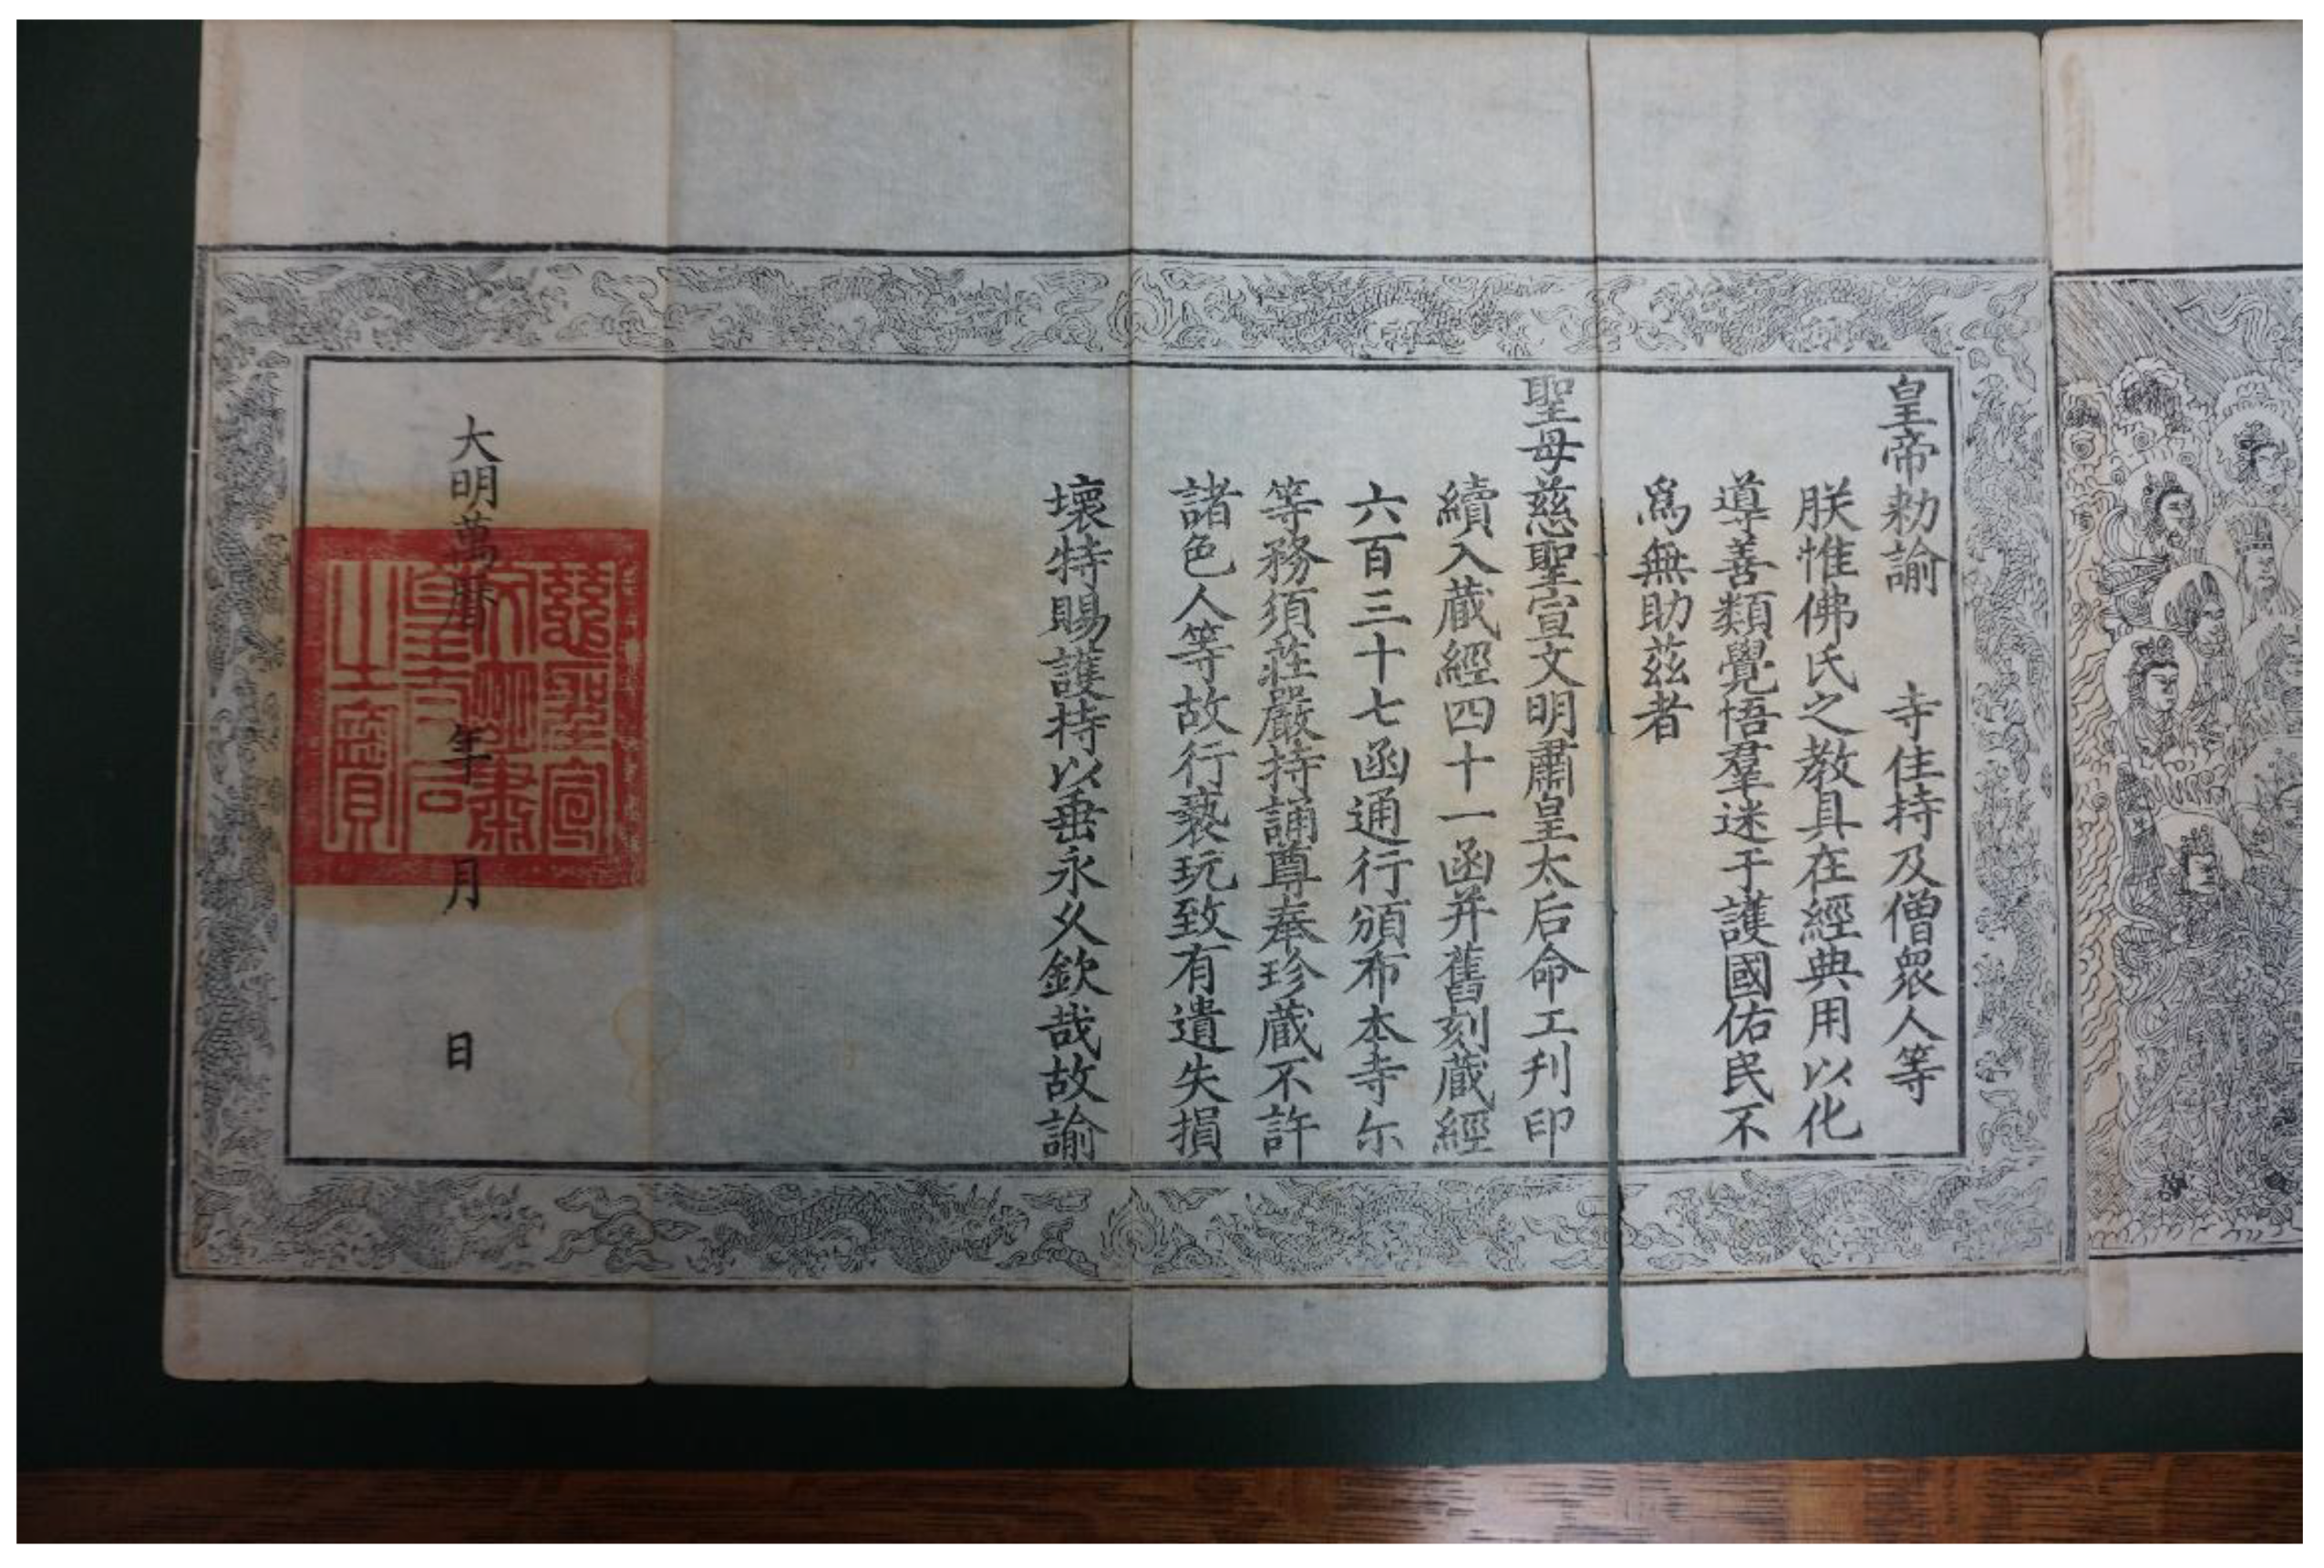 皇帝勑諭　寺住持及僧衆人等
朕惟佛氏之教具在經典用以化
導善類覺悟羣迷于護國佑民不
爲無助茲者
聖母慈聖宣文明肅皇太后命工刋印
續入藏經四十一函并舊刻藏經
六百三十七函通行頒布本寺尓
等務須莊嚴持誦尊奉珍藏不許
諸色人等故行褻玩致有遺失損
壞特賜護持以垂永久欽哉故諭
大明萬曆　年　月　日
慈聖宣
文明肅
皇太后
之寶